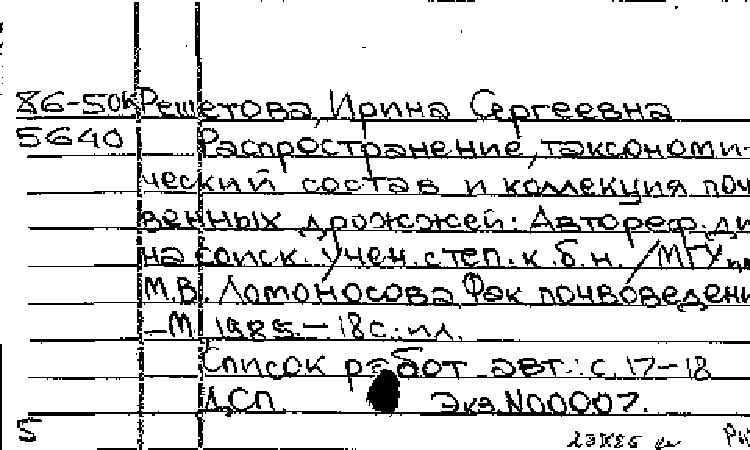 86-50к Решетова, Ирина Сергеевна
5640 Распространение, таксономи-
ческий состав и коллекция поч
венных дрожжей: Автореф. ди
на соиск. учен. степ. к.б.н. / МГУ
М.В. Ломоносова, Фак почвоведени
–М., 1985.–18с.:ил.
Список работ авт.: с. 17–18
ДСП. Экз. N00007.
5